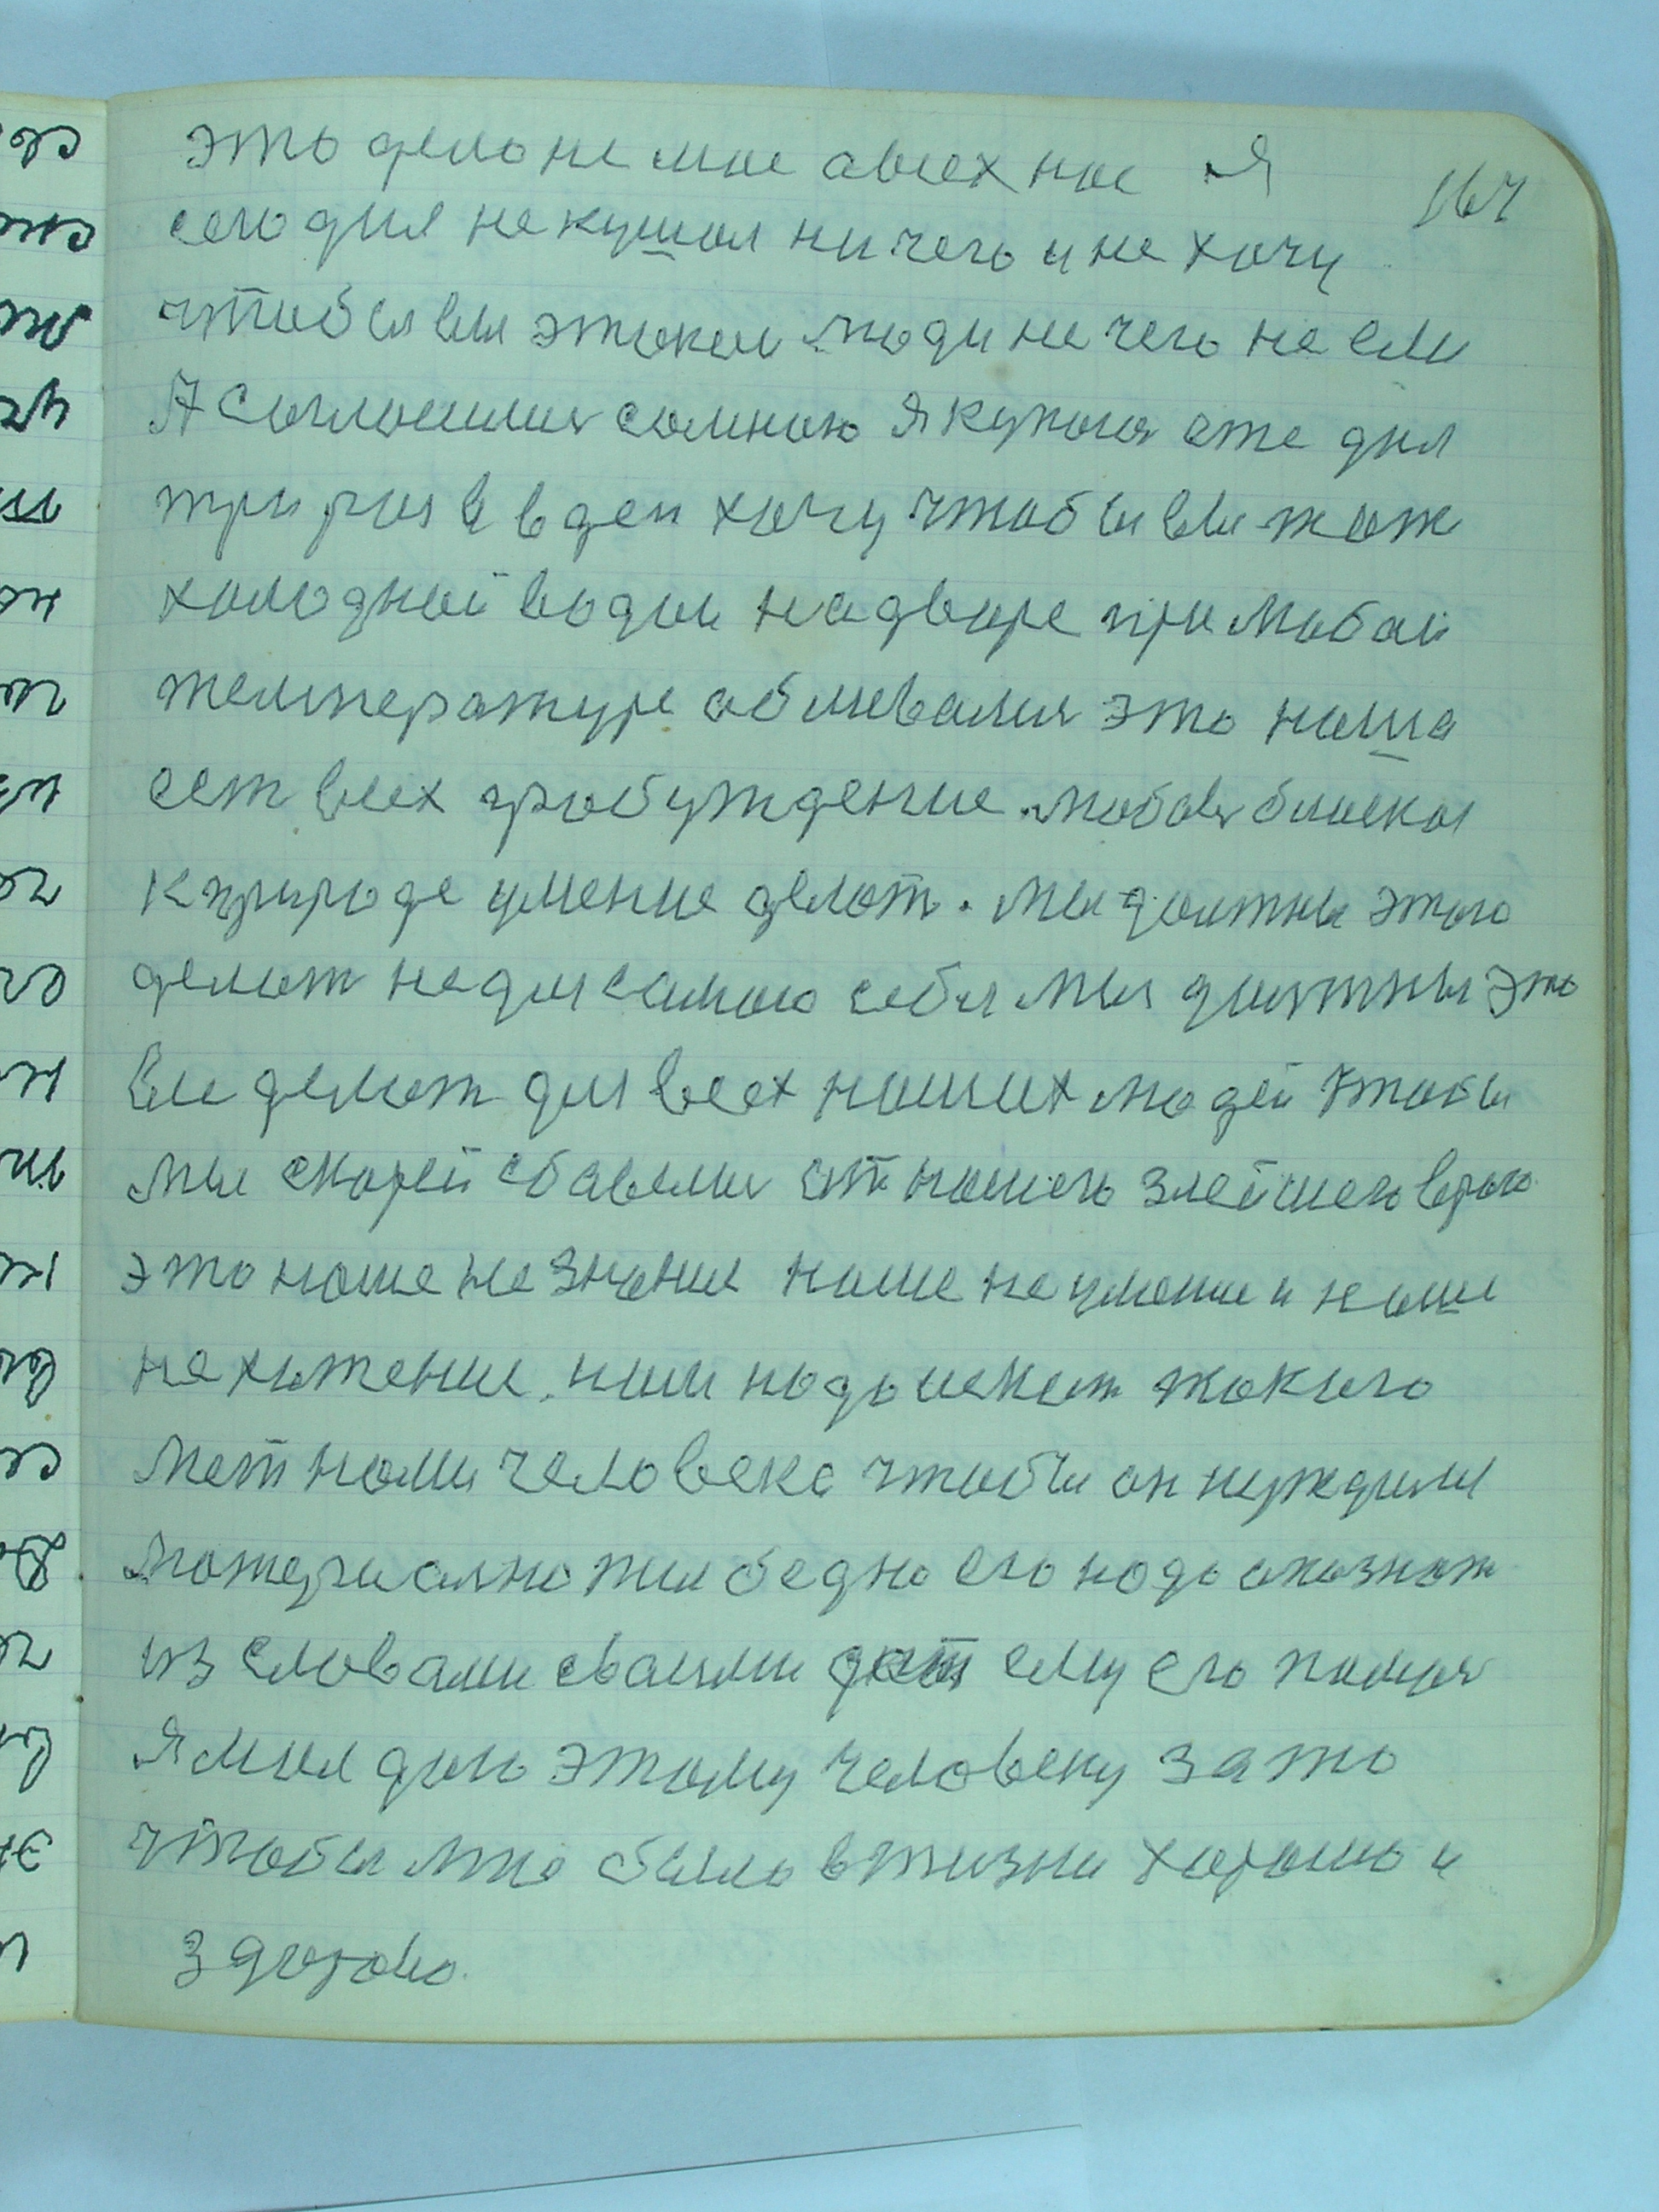 это дело не мое авсех нас Я
164
сегодня не кушал ни чего и не хочу
чтобы вы этокои люди не чего не ели
А согласилис сомною я купаюся оте дня
три раза в ден хочу чтобы вы так
холодной водои на дворе при любой
температуре обливалися это наша
ест всех пробуждение. любов блиска
к природе умение делат. Мы должны этого
делат не для самаю себя мы должны это
все делат для всех наших людей чтобы
мы скорей сбавелис от нашего злейшего врага
это наше не знание наше не умение и наше
не хотение. нам надо искат такого
меж нами человека чтобы он нуждался
материално жил бедно его надо опазнат
из словами своими дат ему его помощ
Я мол даю этому человеку за то
чтобы мне было в жизни хорошо и
здорово.